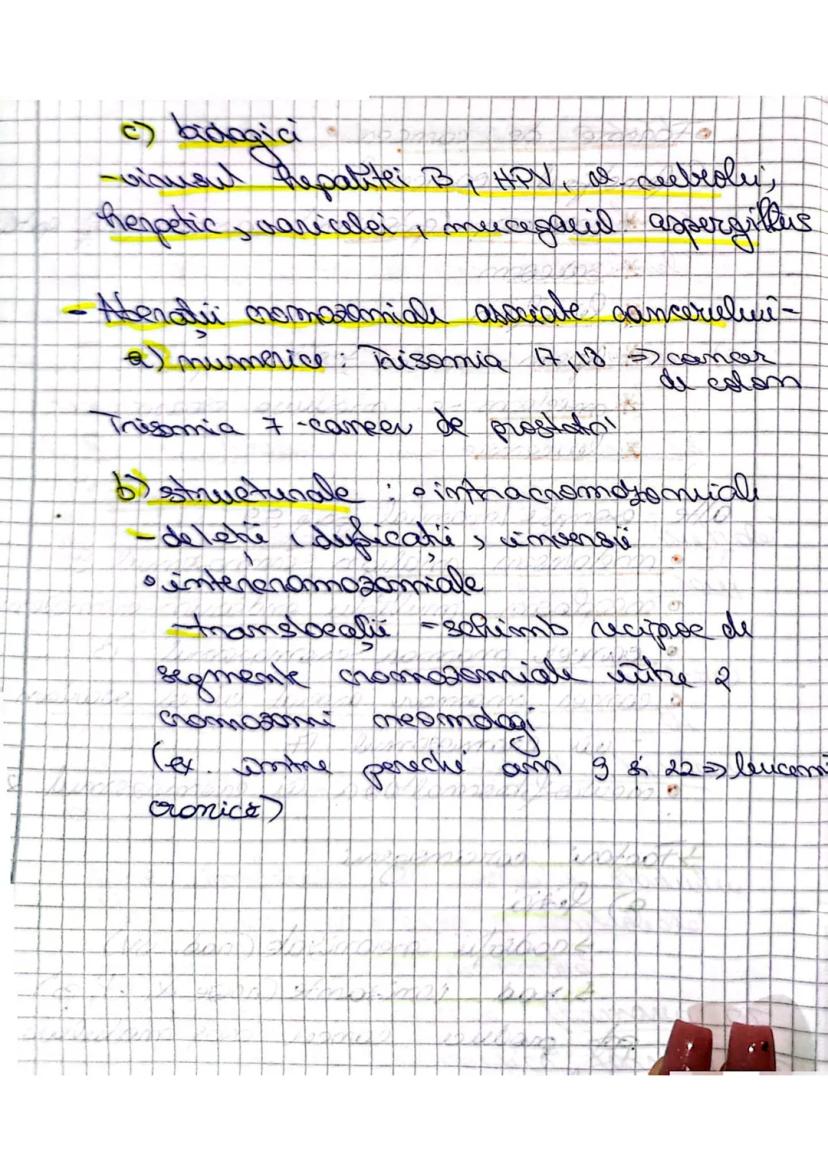 c) biologici
- virusul hepatitei B, HPV, v. nebeolei,
herpetic, varicelei, mucegaiul aspergillus
- Aberații cromozomiale asociate cancerului -
a) numerice : Trisomia 17,18 => cancer
de colon
Trisomia 7 - cancer de prostată
b) structurale : o intracromozomiale
- deleții, duplicații, inversii
o intercromozomiale
- translocații = schimb reciproc de
segmente cromozomiale între 2
cromozomi neomologi
(ex. între perechi am 9 și 22 => leucemi
cronică)